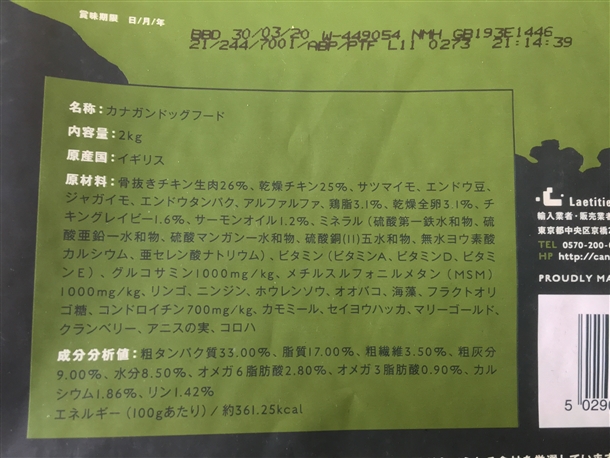 賞味期限 日/月/年
BBD 30/03/20 W-449054 NMH GB193E1446
21/244/7001/ABP/PTF L11 0273 21:14:39
名称:カナガンドッグフード
内容量:2kg
原産国:イギリス
原材料:骨抜きチキン生肉26%、乾燥チキン25%、サツマイモ、エンドウ豆、
ジャガイモ、エンドウタンパク、アルファルファ、鶏脂3.1%、乾燥全卵3.1%、チ
キングレイビー1.6%、サーモンオイル1.2%、ミネラル(硫酸第一鉄水和物、硫
酸亜鉛一水和物、硫酸マンガン一水和物、硫酸銅(II)五水和物、無水ヨウ素酸
カルシウム、亜セレン酸ナトリウム)、ビタミン(ビタミンA、ビタミンD、ビタミ
ンE)、グルコサミン1000mg/kg、メチルスルフォニルメタン(MSM)
1000mg/kg、リンゴ、ニンジン、ホウレンソウ、オオバコ、海藻、フラクトオリ
ゴ糖、コンドロイチン700mg/kg、カモミール、セイヨウハッカ、マリーゴールド、
クランベリー、アニスの実、コロハ
成分分析値:粗タンパク質33.00%、脂質17.00%、粗繊維3.50%、粗灰分
9.00%、水分8.50%、オメガ6脂肪酸2.80%、オメガ3脂肪酸0.90%、カル
シウム1.86%、リン1.42%
エネルギー(100gあたり)/約361.25kcal
Laetitie
輸入業者・販売業者
東京都中央区京橋
TEL 0570-200-
HP http://can
PROUDLY MA
5 0290
を厳選しています